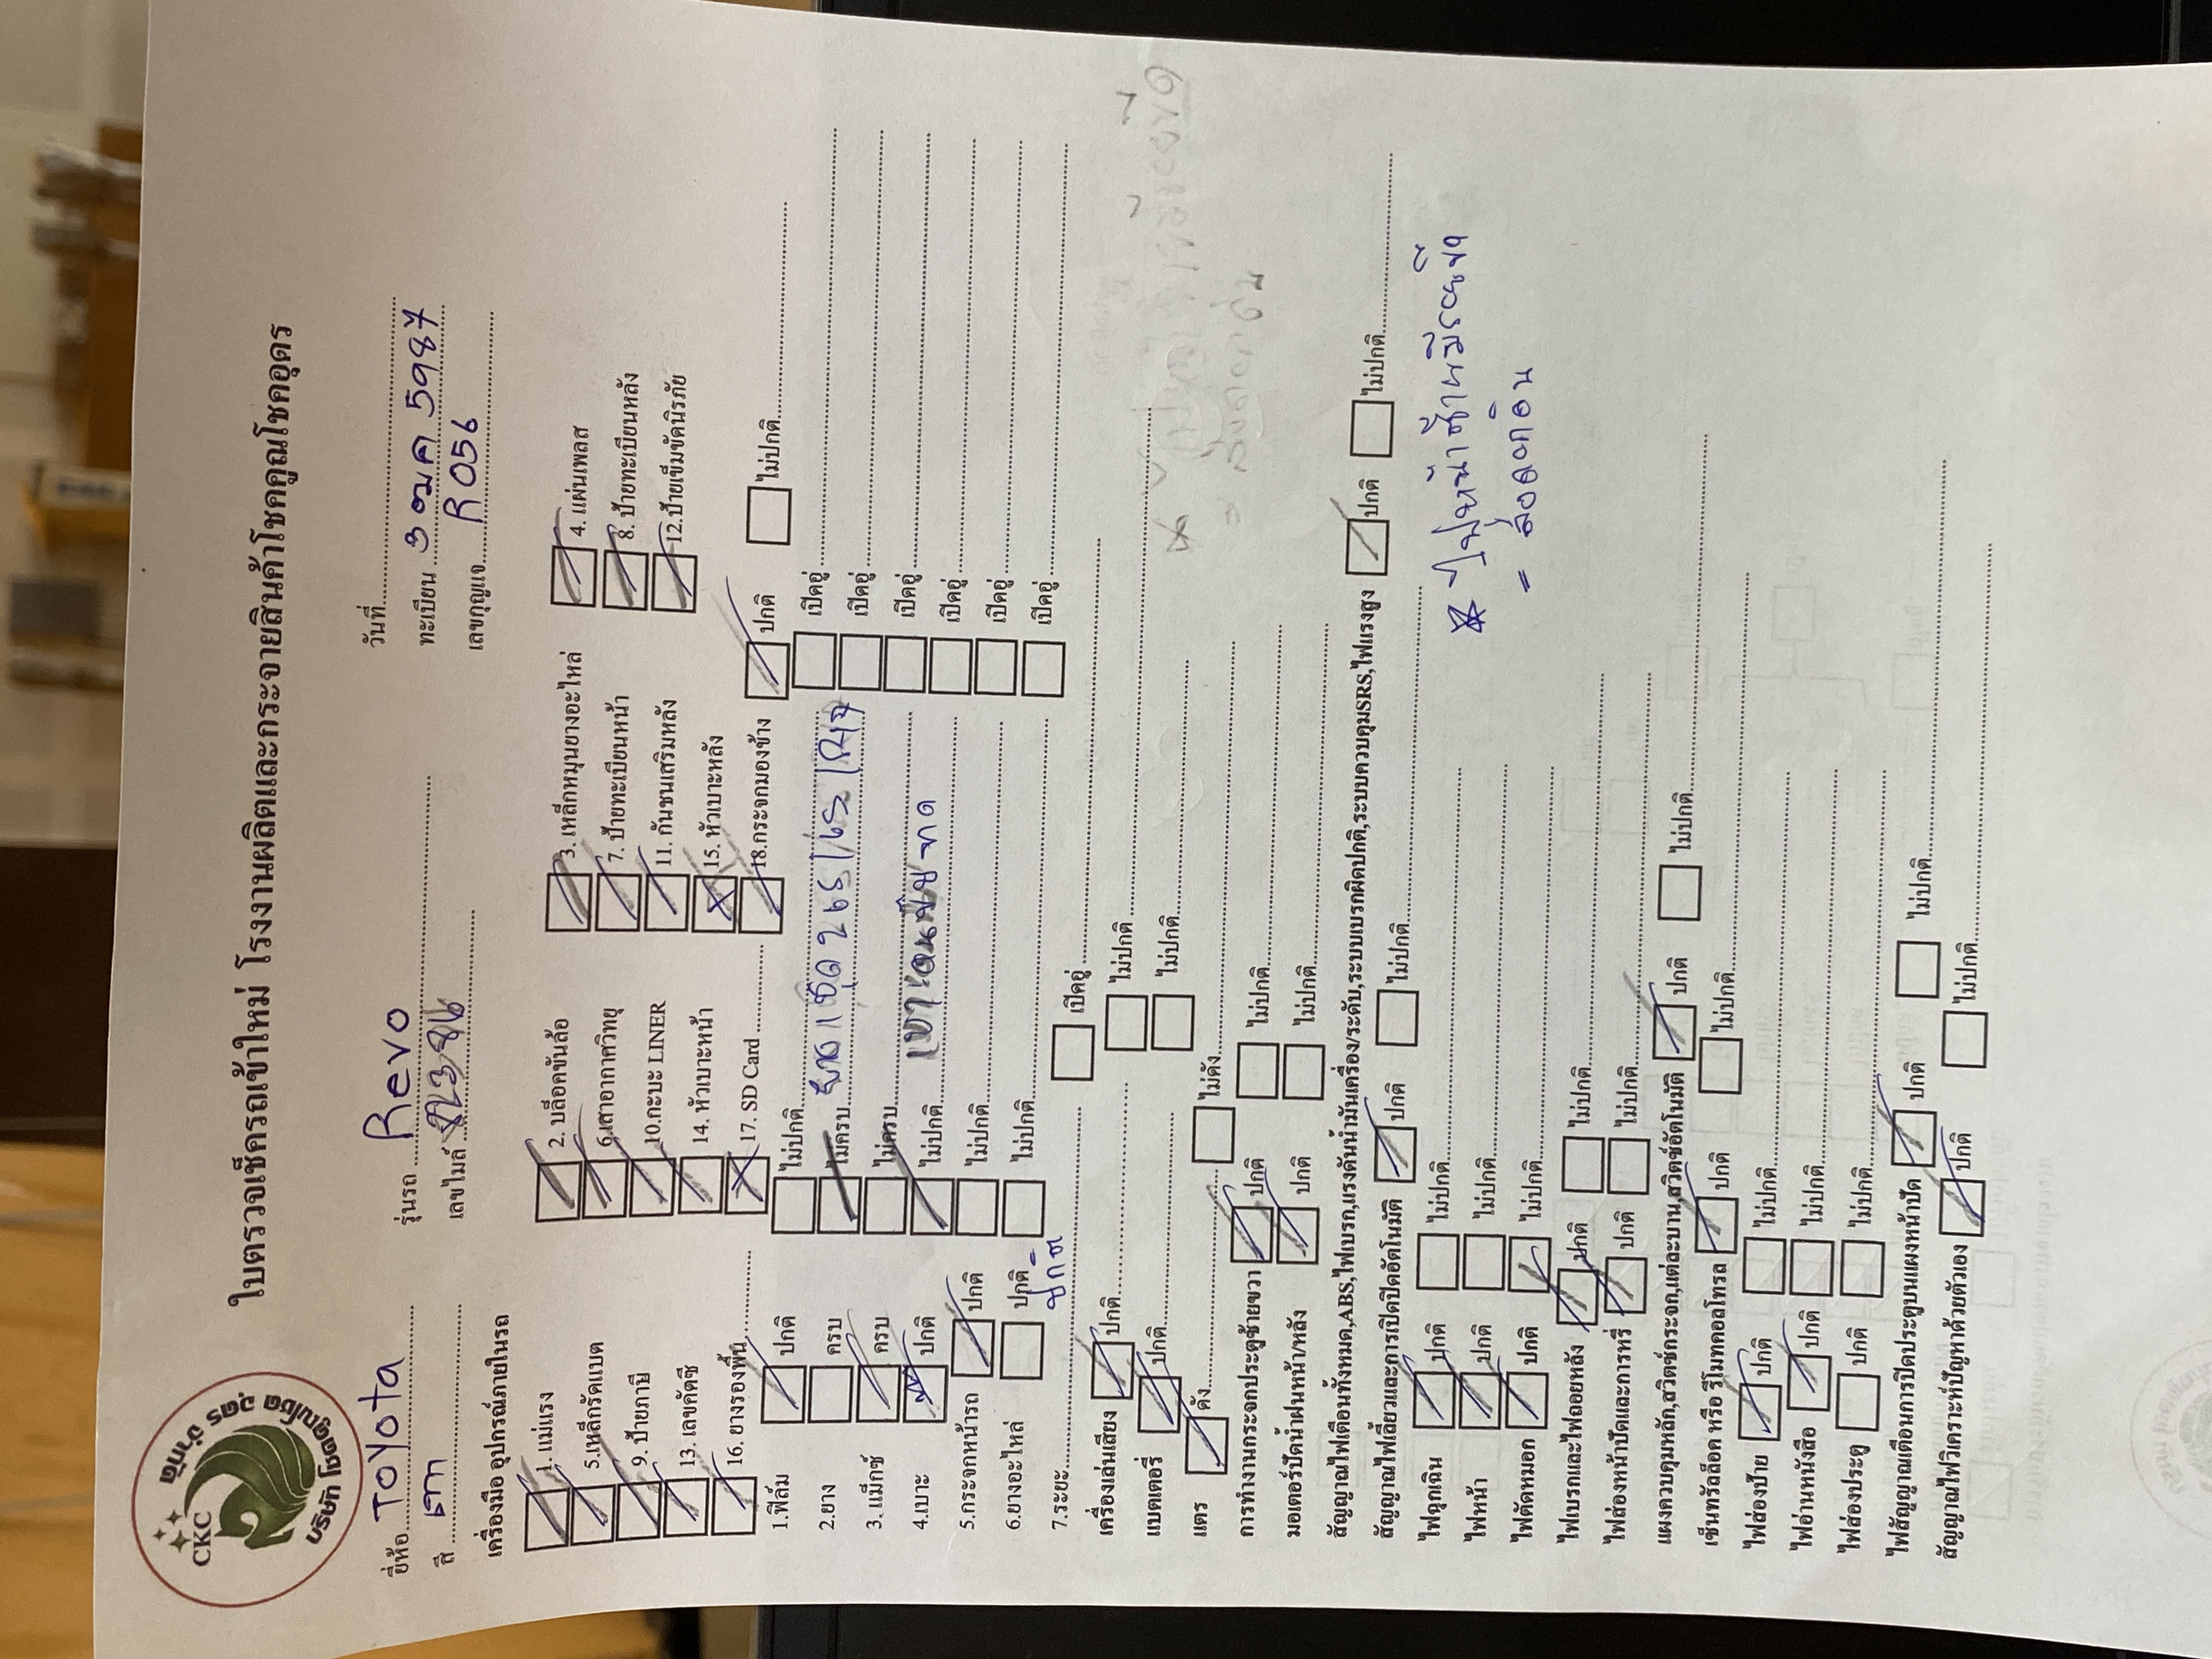 บริษัท โชคคูณโชค อุดร จำกัด
CKC
ใบตรวจเช็ครถเข้าใหม่ โรงงานผลิตและกระจายสินค้าโชคคูณโชคอุดร
วันที่
ยี่ห้อ Toyota รุ่นรถ Revo ทะเบียน 3ฒค 5987
สี เทา เลขไมล์ เลขกุญแจ R056
เครื่องมือ อุปกรณ์ภายในรถ
1. แม่แรง 2. บล็อคขันล้อ 3. เหล็กหมุนยางอะไหล่ 4. แผ่นเพลส
5.เหล็กรัดแบต 6.เสาอากาศวิทยุ 7. ป้ายทะเบียนหน้า 8. ป้ายทะเบียนหลัง
9. ป้ายภาษี 10.กะบะ LINER 11. กันชนเสริมหลัง 12.ป้ายเข็มขัดนิรภัย
13. เลขคัตซี 14. หัวเบาะหน้า 15. หัวเบาะหลัง
16. ยางรองพื้น 17. SD Card 18.กระจกมองข้าง ปกติ ไม่ปกติ
1.ฟิล์ม ปกติ ไม่ปกติ เปิดอู่
2.ยาง ครบ ไม่ครบ 265/65 เปิดอู่
3. แม็กซ์ ครบ ไม่ครบ เปิดอู่
4.เบาะ ปกติ ไม่ปกติ ขาด เปิดอู่
5.กระจกหน้ารถ ปกติ ไม่ปกติ เปิดอู่
6.ยางอะไหล่ ปกติ ไม่ปกติ เปิดอู่
7.ระยะ ปกติ เปิดอู่
เครื่องเล่นเสียง ปกติ ไม่ปกติ
แบตเตอรี่ ปกติ ไม่ปกติ
แตร ดัง ไม่ดัง
การทำงานกระจกประตูซ้ายขวา ปกติ ไม่ปกติ
มอเตอร์ปัดน้ำฝนหน้า/หลัง ปกติ ไม่ปกติ
สัญญาณไฟเตือนทั้งหมด,ABS,ไฟเบรก,แรงดันน้ำมันเครื่อง/ระดับ,ระบบเบรกผิดปกติ,ระบบควบคุมSRS,ไฟแรงสูง ปกติ ไม่ปกติ
สัญญาณไฟเลี้ยวและการเปิดปิดอัตโนมัติ ปกติ ไม่ปกติ
ไฟฉุกเฉิน ปกติ ไม่ปกติ
ไฟหน้า ปกติ ไม่ปกติ
ไฟตัดหมอก ปกติ ไม่ปกติ
ไฟเบรกและไฟถอยหลัง ปกติ ไม่ปกติ
ไฟส่องหน้าปัดและการหรี่ ปกติ ไม่ปกติ
แผงควบคุมหลัก,สวิตช์กระจก,แต่ละบาน,สวิตช์อัตโนมัติ ปกติ ไม่ปกติ
เซ็นทรัลล็อค หรือ รีโมทคอลโทรล ปกติ ไม่ปกติ
ไฟส่องป้าย ปกติ ไม่ปกติ
ไฟอ่านหนังสือ ปกติ ไม่ปกติ
ไฟส่องประตู ปกติ ไม่ปกติ
ไฟสัญญาณเตือนการปิดประตูบนแผงหน้าปัด ปกติ ไม่ปกติ
สัญญาณไฟวิเคราะห์ปัญหาด้วยตัวเอง ปกติ ไม่ปกติ